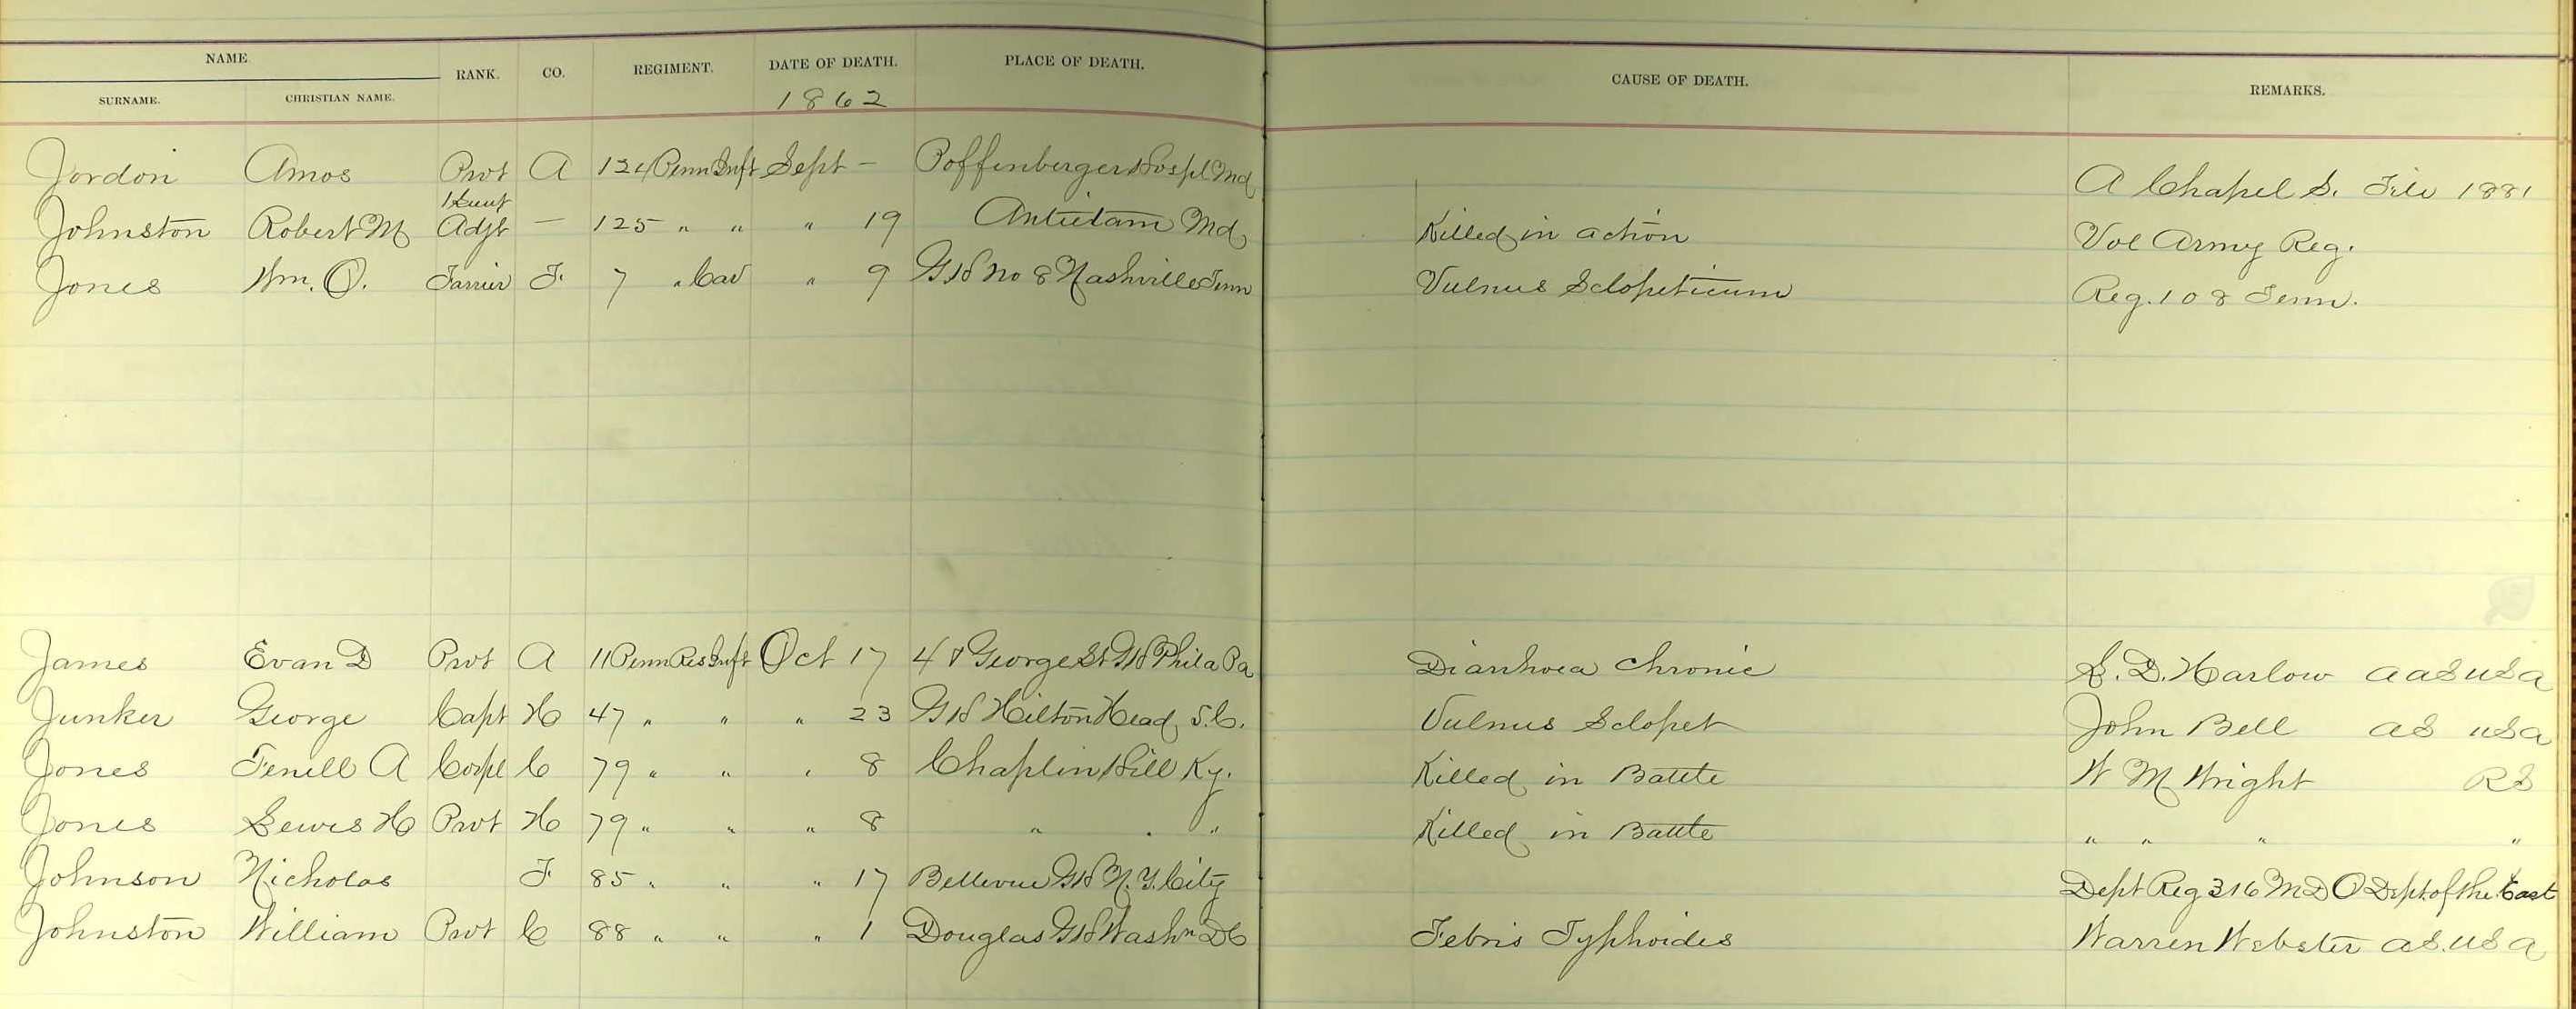 NAME. RANK. CO. REGIMENT. DATE OF DEATH. PLACE OF DEATH. CAUSE OF DEATH. REMARKS.
SURNAME. CHRISTIAN NAME. 1862
Jordon Amos Prvt A 124 Penn Inft Sept — Poffenberger Hospl Md A Chapel S. File 1881
Johnston Robert M 1 Lieut Adjt — 125 " " " 19 Antietam Md Killed in action Vol Army Reg.
Jones Wm. O. Farrier F. 7 " Cav " 9 GH No 8 Nashville Tenn Vulnus Sclopeticum Reg. 108 Tenn.
James Evan D Prvt A 11 Penn Res Inft Oct 17 4 & George St GH Phila Pa Diarrhoea Chronic S. D. Harlow AASUSA
Junker George Capt H 47 " " " 23 GH Hilton Head S.C. Vulnus Sclopet John Bell AS USA
Jones Fenell A Corpl C 79 " " " 8 Chaplin Hill Ky. Killed in Battle W M Wright RS
Jones Lewis H Prvt H 79 " " " 8 " " " Killed in Battle " " " "
Johnson Nicholas F. 85 " " " 17 Bellevue GH N.Y. City Dept Reg 316 M D O Dept. of the East
Johnston William Prvt C 88 " " " 1 Douglas GH Washn DC Febris Typhoides Warren Webster A.S. USA